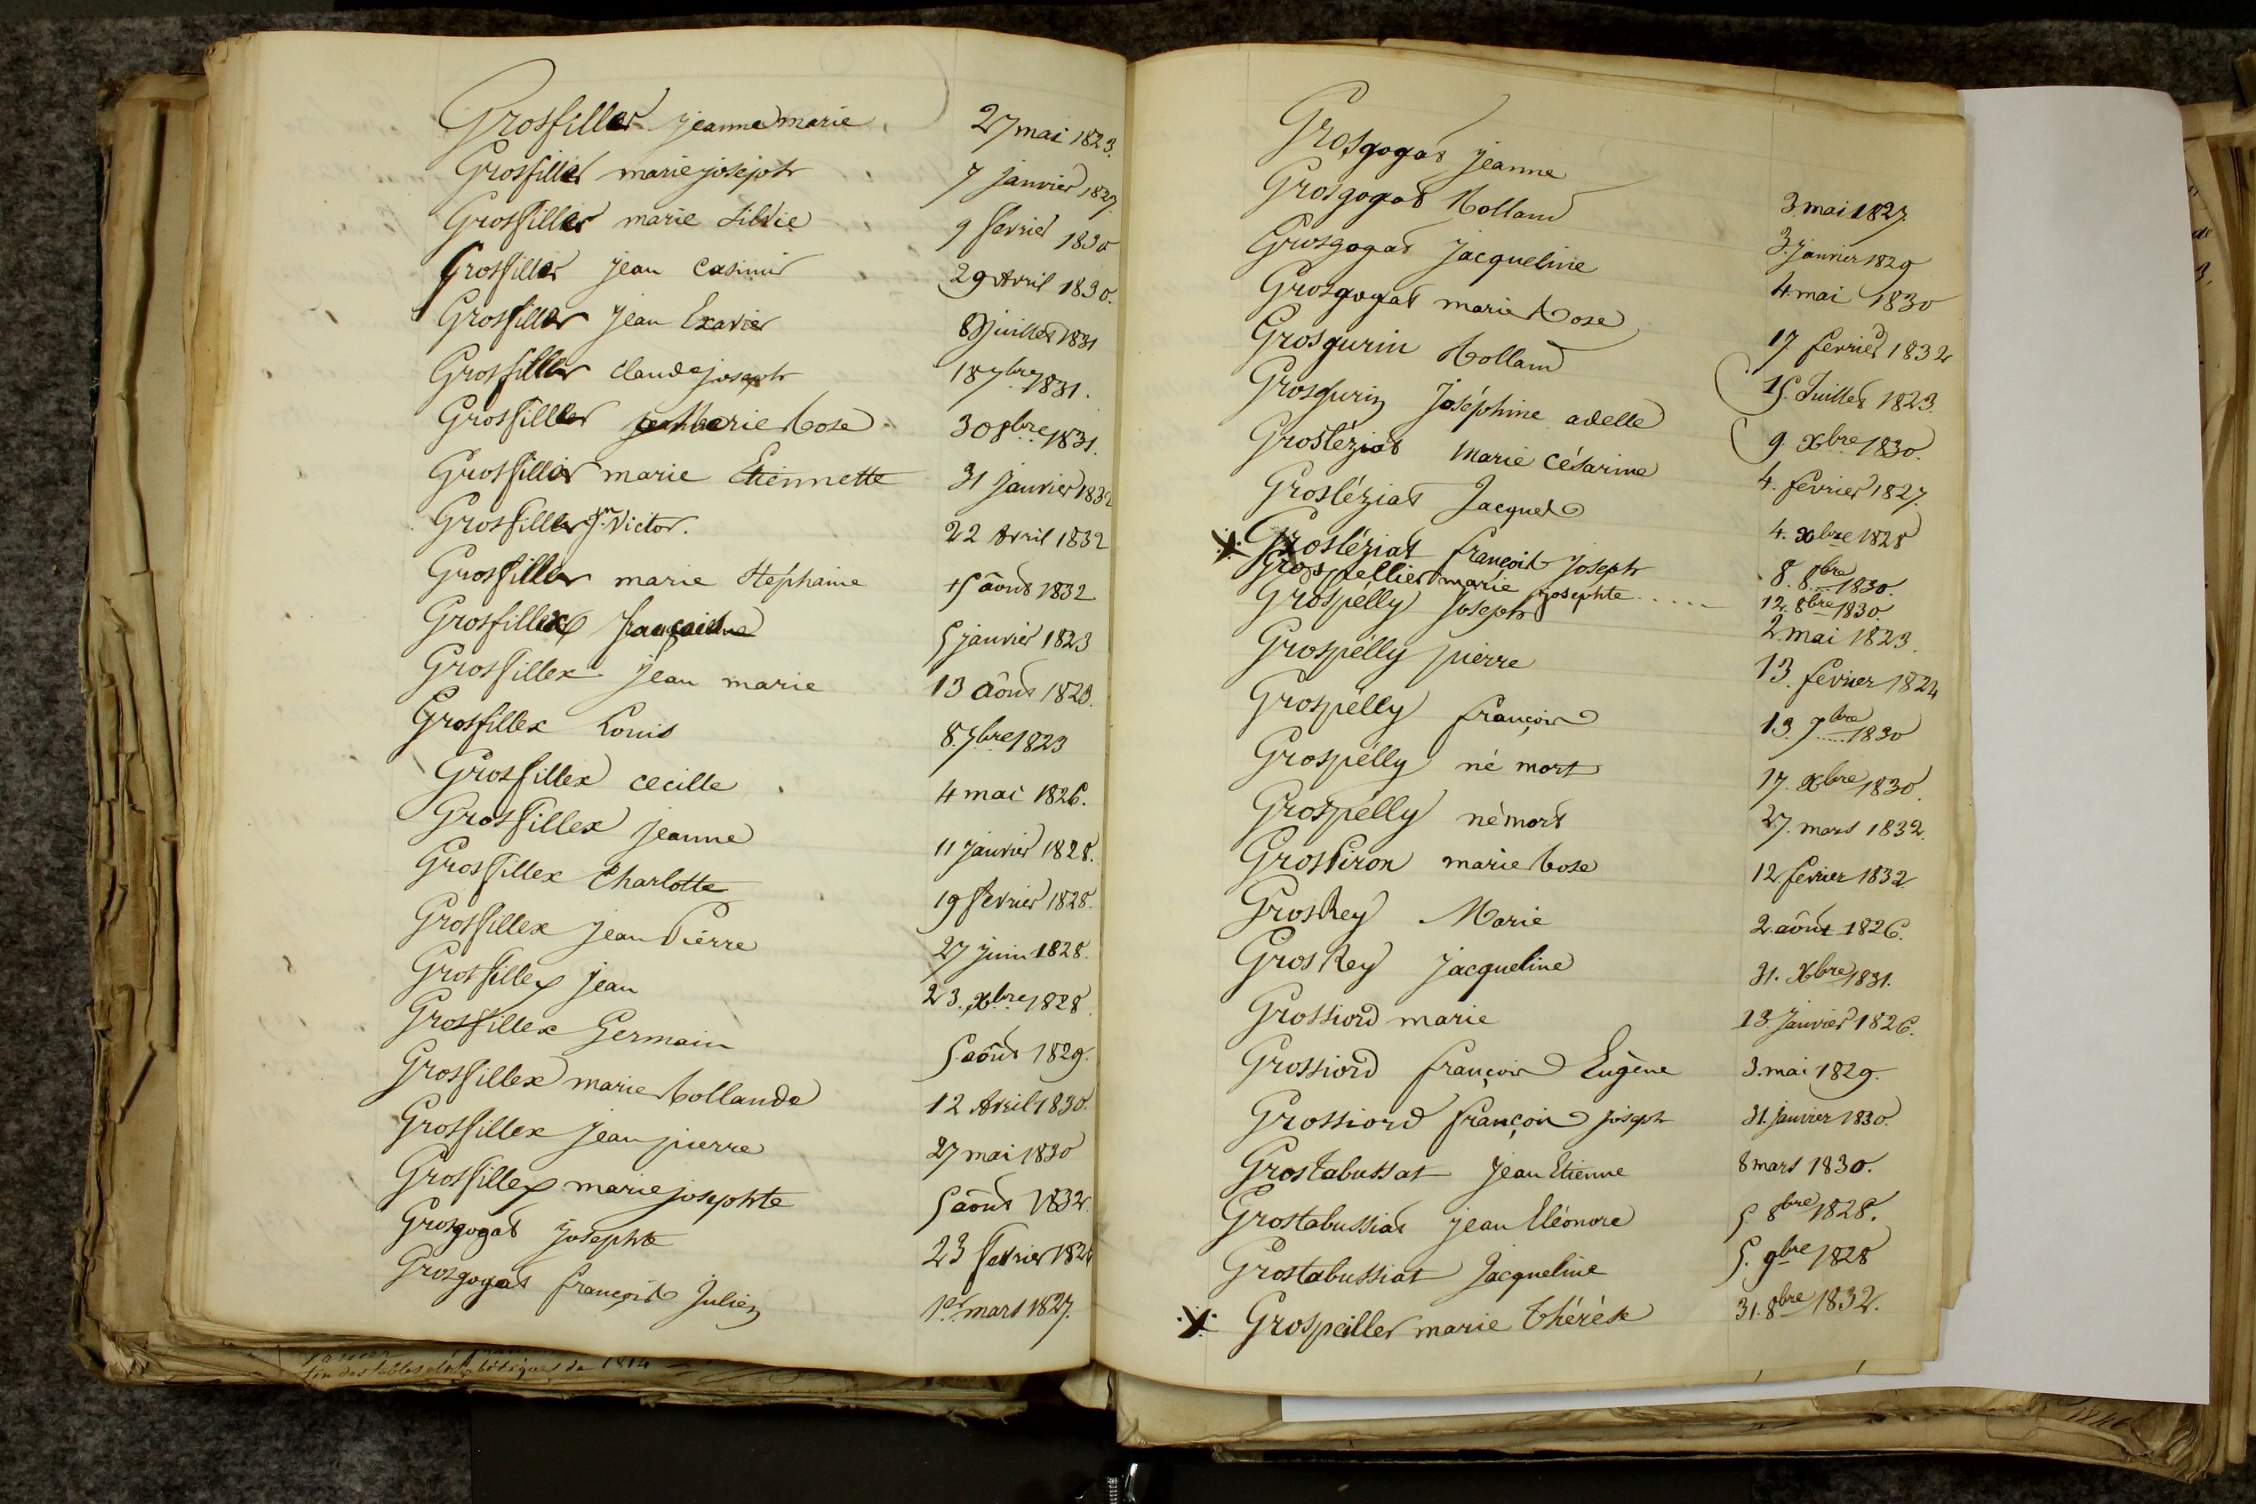 Grosfiller jeanne marie 27 mai 1823.
Grosfiller marie joseph 7 janvier 1827.
Grosfiller marie Silvie 9 fevrier 1830
Grosfiller jean Casimir 29 Avril 1830.
Grosfiller jean Exavier 8 juillet 1831
Grosfiller claude joseph 1 8 7bre 1831.
Grosfiller marie Rose 30 8bre 1831.
Grosfiller marie Etiennette 31 janvier 1832
Grosfiller jn Victor. 22 Avril 1832
Grosfiller marie Stéphanie 15 août 1832
Grosfillex françoise 5 janvier 1823
Grosfillex jean marie 13 août 1823.
Grosfillex Louis 8. 7bre 1823
Grosfillex cecille 4 mai 1826.
Grosfillex jeanne 11 janvier 1828.
Grosfillex Charlotte 19 fevrier 1828.
Grosfillex jean Pierre 27 juin 1828.
Grosfillex jean 23. xbre 1828
Grosfillex Germain 5 août 1829.
Grosfillex marie Rollande 12 Avril 1830.
Grosfillex jean pierre 27 mai 1830
Grosfillex marie josephte 5 août 1832.
Grosgogat josephte 23 fevrier 1826
Grosgogat françois Julien 1er mars 1827.
fin des tables alphabétiques de 1814
Grosgogat jeanne 3 mai 1827.
Grosgogat Rolland 3. janvier 1829
Grosgogat jacqueline 4 mai 1830
Grosgogat marie Rose 17 fevrier 1832
Grosgurin Rolland 15. Juillet 1823.
Grosgurin Joséphine adelle 9. xbre 1830.
Grosléziat Marie césarine 4. fevrier 1827.
Grosléziat Jacques 4. xbre 1828
Grosléziat françois joseph 8. 8bre 1830.
Grospellier marie josephte 12. 8bre 1830.
Grospélly joseph 2. mai 1823.
Grospélly pierre 13. fevrier 1824
Grospélly françois 13. 7bre 1830
Grospélly né mort 17. xbre 1830.
Grospélly né mort 27. mars 1832.
Grospiron marie Rose 12 fevrier 1832
GrosRey Marie 2. août 1826.
GrosRey jacqueline 31. Xbre 1831.
Grossiord marie 13. janvier 1826.
Grossiord françois Eugène 3. mai 1829.
Grossiord françois joseph 31. janvier 1830.
Grostabussat jean Etienne 8 mars 1830.
Grostabussiat jean Eléonore 5 8bre 1828.
Grostabussiat Jacqueline 5. 9bre 1828
Grospeiller marie thérèse 31. 8bre 1832.